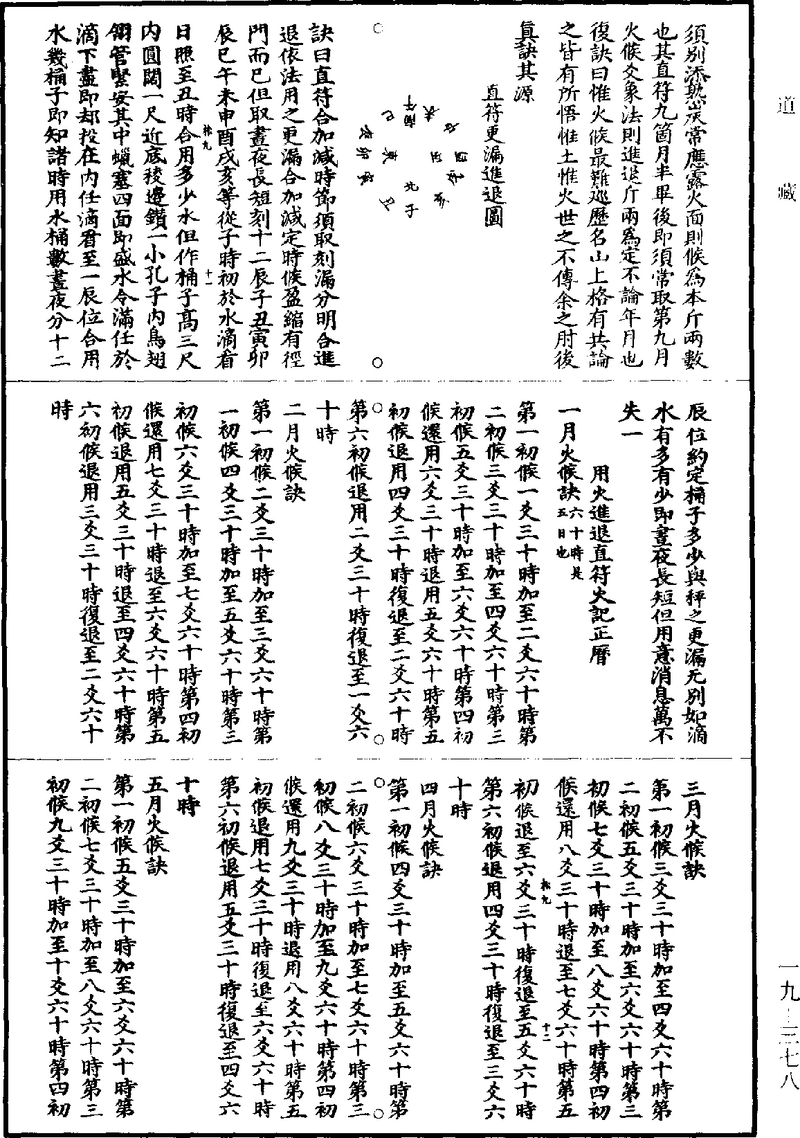 道藏
須別添熟炭常應露火面則候為本斤兩數
也其直符九箇月半畢後即須常取第九月
火候爻象法則進退斤兩為定不論年月也
復訣曰惟火候最難巡歷名山上格有共論
之皆有所悟惟土惟火世之不傳余之肘後
真訣其源
直符更漏進退圖
訣曰直符合加減時節須取刻漏分明合進
退依法用之更漏合加減定時候盈縮有徑
門而已但取晝夜長短刻十二辰子丑寅卯
辰巳午未申酉戌亥等從子時初於水滴看
日照至丑時合用多少水但作桶子高三尺
內圓闊一尺近底稜邊鑽一小孔子內鳥翅
翎管緊安其中蠟塞四面即盛水令滿任於
滴下盡即却投在內任滴看至一辰位合用
水幾桶子即知諸時用水桶數晝夜分十二
辰位約定桶子多少與秤之更漏无別如滴
水有多有少即晝夜長短但用意消息萬不
失一
用火進退直符火記正曆
一月火候訣六十時是五日也
第一初候一爻三十時加至二爻六十時第
二初候三爻三十時加至四爻六十時第三
初候五爻三十時加至六爻六十時第四初
候還用六爻三十時退用五爻六十時第五
初候退用四爻三十時復退至三爻六十時
第六初候退用二爻三十時復退至一爻六
十時
二月火候訣
第一初候二爻三十時加至三爻六十時第
一初候四爻三十時加至五爻六十時第三
初候六爻三十時加至七爻六十時第四初
候還用七爻三十時退至六爻六十時第五
初候退用五爻三十時退至四爻六十時第
六初候退用三爻三十時復退至二爻六十
時
三月火候訣
第一初候三爻三十時加至四爻六十時第
二初候五爻三十時加至六爻六十時第三
初候七爻三十時加至八爻六十時第四初
候還用八爻三十時退至七爻六十時第五
初候退至六爻三十時復退至五爻六十時
第六初候退用四爻三十時復退至三爻六
十時
四月火候訣
第一初候四爻三十時加至五爻六十時第
二初候六爻三十時加至七爻六十時第三
初候八爻三十時加至九爻六十時第四初
候還用九爻三十時退用八爻六十時第五
初候退用七爻三十時復退至六爻六十時
第六初候退用五爻三十時復退至四爻六
十時
五月火候訣
第一初候五爻三十時加至六爻六十時第
二初候七爻三十時加至八爻六十時第三
初候九爻三十時加至十爻六十時第四初
一九—三七八